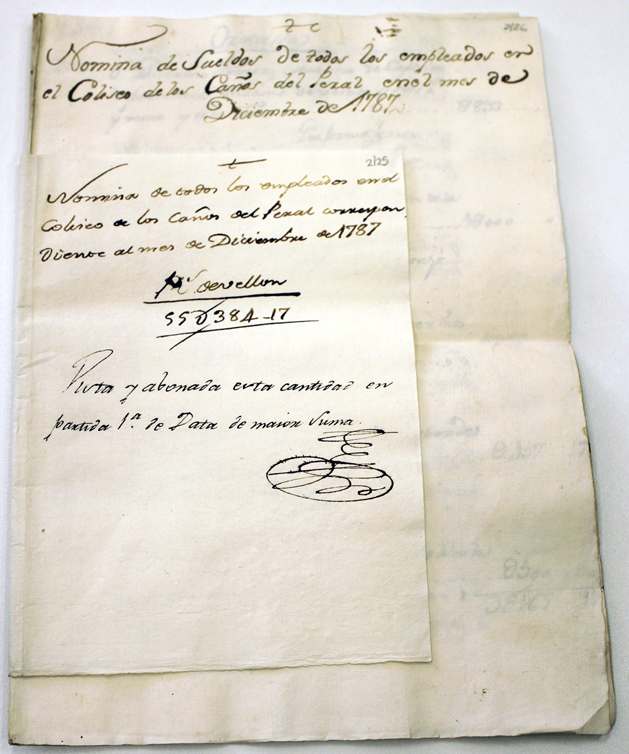 2/26
Nomina de Sueldos de todos los empleados en
el Coliseo de los Caños del Peral en el mes de
Diciembre de 1787.
2/25
Nomina de todos los empleados en el
Coliseo de los Caños del Peral correspon
diente al mes de Diciembre de 1787
Rs. de vellon
55D384_17
Vista y abonada esta cantidad en
partida 1.a de Data de maior suma.